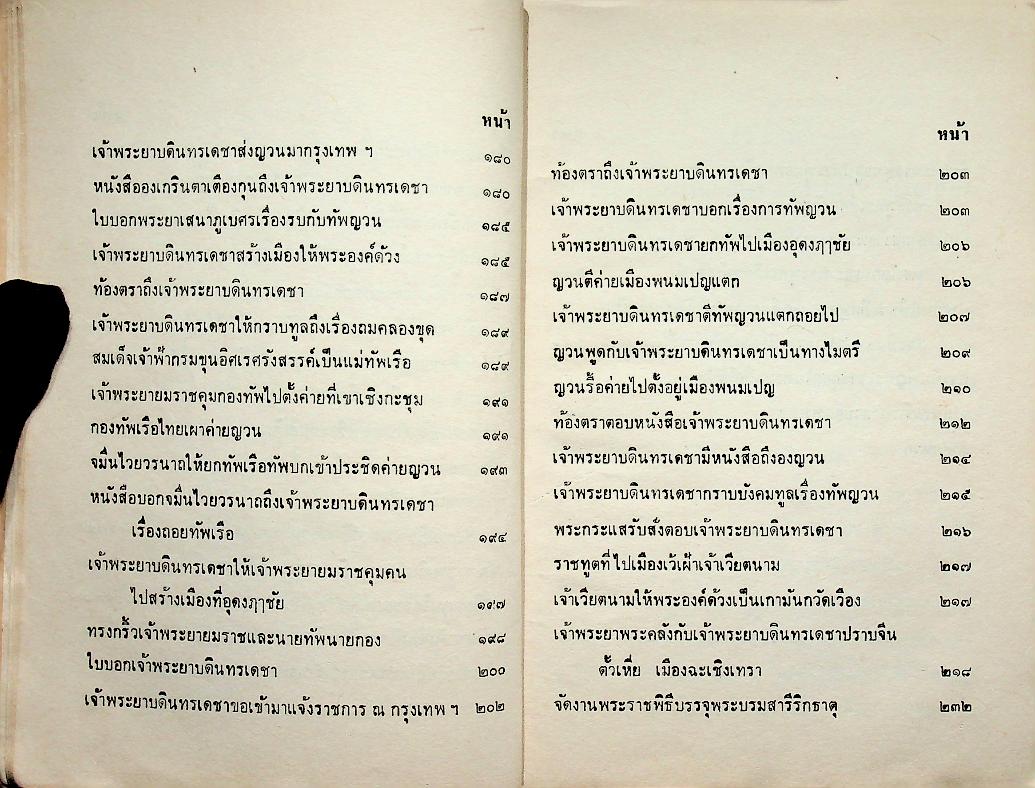 หน้า
เจ้าพระยาบดินทรเดชาส่งญวนมากรุงเทพ ฯ ๑๘๐
หนังสือองเกรินตาเตืองกุนถึงเจ้าพระยาบดินทรเดชา ๑๘๐
ใบบอกพระยาเสนาภูเบศรเรื่องรบกับทัพญวน ๑๘๕
เจ้าพระยาบดินทรเดชาสร้างเมืองให้พระองค์ด้วง ๑๘๕
ท้องตราถึงเจ้าพระยาบดินทรเดชา ๑๘๗
เจ้าพระยาบดินทรเดชาให้กราบทูลถึงเรื่องถมคลองขุด ๑๘๙
สมเด็จเจ้าฟ้ากรมขุนอิศเรศรังสรรค์เป็นแม่ทัพเรือ ๑๘๙
เจ้าพระยายมราชคุมกองทัพไปตั้งค่ายที่เขาเชิงกะชุม ๑๙๑
กองทัพเรือไทยเผาค่ายญวน ๑๙๑
จมื่นไวยวรนาถให้ยกทัพเรือทัพบกเข้าประชิดค่ายญวน ๑๙๓
หนังสือบอกจมื่นไวยวรนาถถึงเจ้าพระยาบดินทรเดชา
เรื่องถอยทัพเรือ ๑๙๔
เจ้าพระยาบดินทรเดชาให้เจ้าพระยายมราชคุมคน
ไปสร้างเมืองที่อุดงฦๅชัย ๑๙๗
ทรงกริ้วเจ้าพระยายมราชและนายทัพนายกอง ๑๙๘
ใบบอกเจ้าพระยาบดินทรเดชา ๒๐๐
เจ้าพระยาบดินทรเดชาขอเข้ามาแจ้งราชการ ณ กรุงเทพ ฯ ๒๐๒
หน้า
ท้องตราถึงเจ้าพระยาบดินทรเดชา ๒๐๓
เจ้าพระยาบดินทรเดชาบอกเรื่องการทัพญวน ๒๐๓
เจ้าพระยาบดินทรเดชายกทัพไปเมืองอุดงฦๅชัย ๒๐๖
ญวนตีค่ายเมืองพนมเปญแตก ๒๐๖
เจ้าพระยาบดินทรเดชาตีทัพญวนแตกถอยไป ๒๐๗
ญวนพูดกับเจ้าพระยาบดินทรเดชาเป็นทางไมตรี ๒๐๙
ญวนรื้อค่ายไปตั้งอยู่เมืองพนมเปญ ๒๑๐
ท้องตราตอบหนังสือเจ้าพระยาบดินทรเดชา ๒๑๒
เจ้าพระยาบดินทรเดชามีหนังสือถึงองญวน ๒๑๔
เจ้าพระยาบดินทรเดชากราบบังคมทูลเรื่องทัพญวน ๒๑๕
พระกระแสรับสั่งตอบเจ้าพระยาบดินทรเดชา ๒๑๖
ราชทูตที่ไปเมืองเว้เฝ้าเจ้าเวียตนาม ๒๑๗
เจ้าเวียตนามให้พระองค์ด้วงเป็นเกามันกวัดเวือง ๒๑๗
เจ้าพระยาพระคลังกับเจ้าพระยาบดินทรเดชาปราบจีน
ตั้วเหี่ย เมืองฉะเชิงเทรา ๒๑๘
จัดงานพระราชพิธีบรรจุพระบรมสารีริกธาตุ ๒๓๒